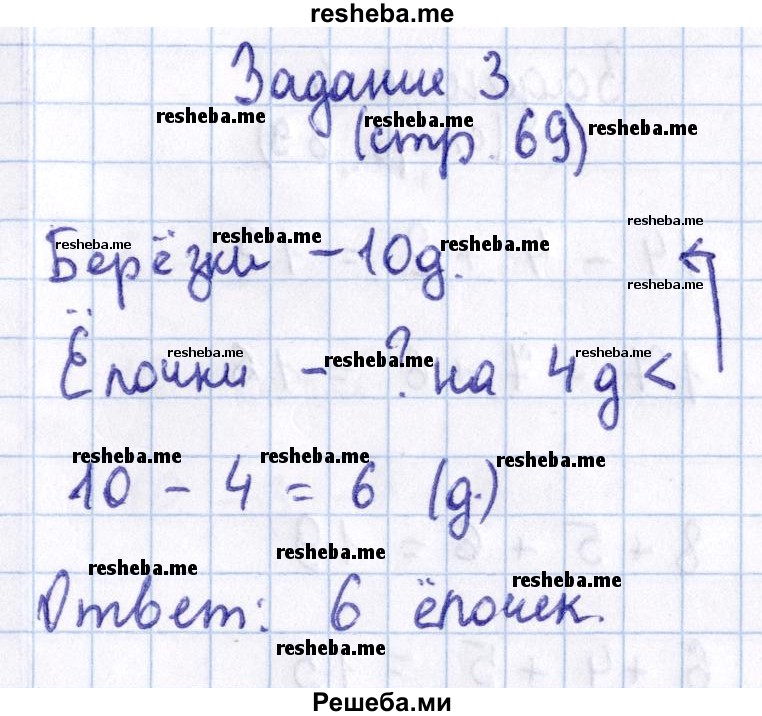 resheba.me
Задание 3
resheba.me resheba.me resheba.me
(стр. 69)
resheba.me
resheba.me resheba.me resheba.me
Берёзки - 10д.
resheba.me
resheba.me resheba.me resheba.me
Ёлочки - ? на 4 д <
resheba.me resheba.me resheba.me
10 - 4 = 6 (д.)
resheba.me
resheba.me resheba.me
Ответ: 6 ёлочек.
resheba.me
Решеба.ми